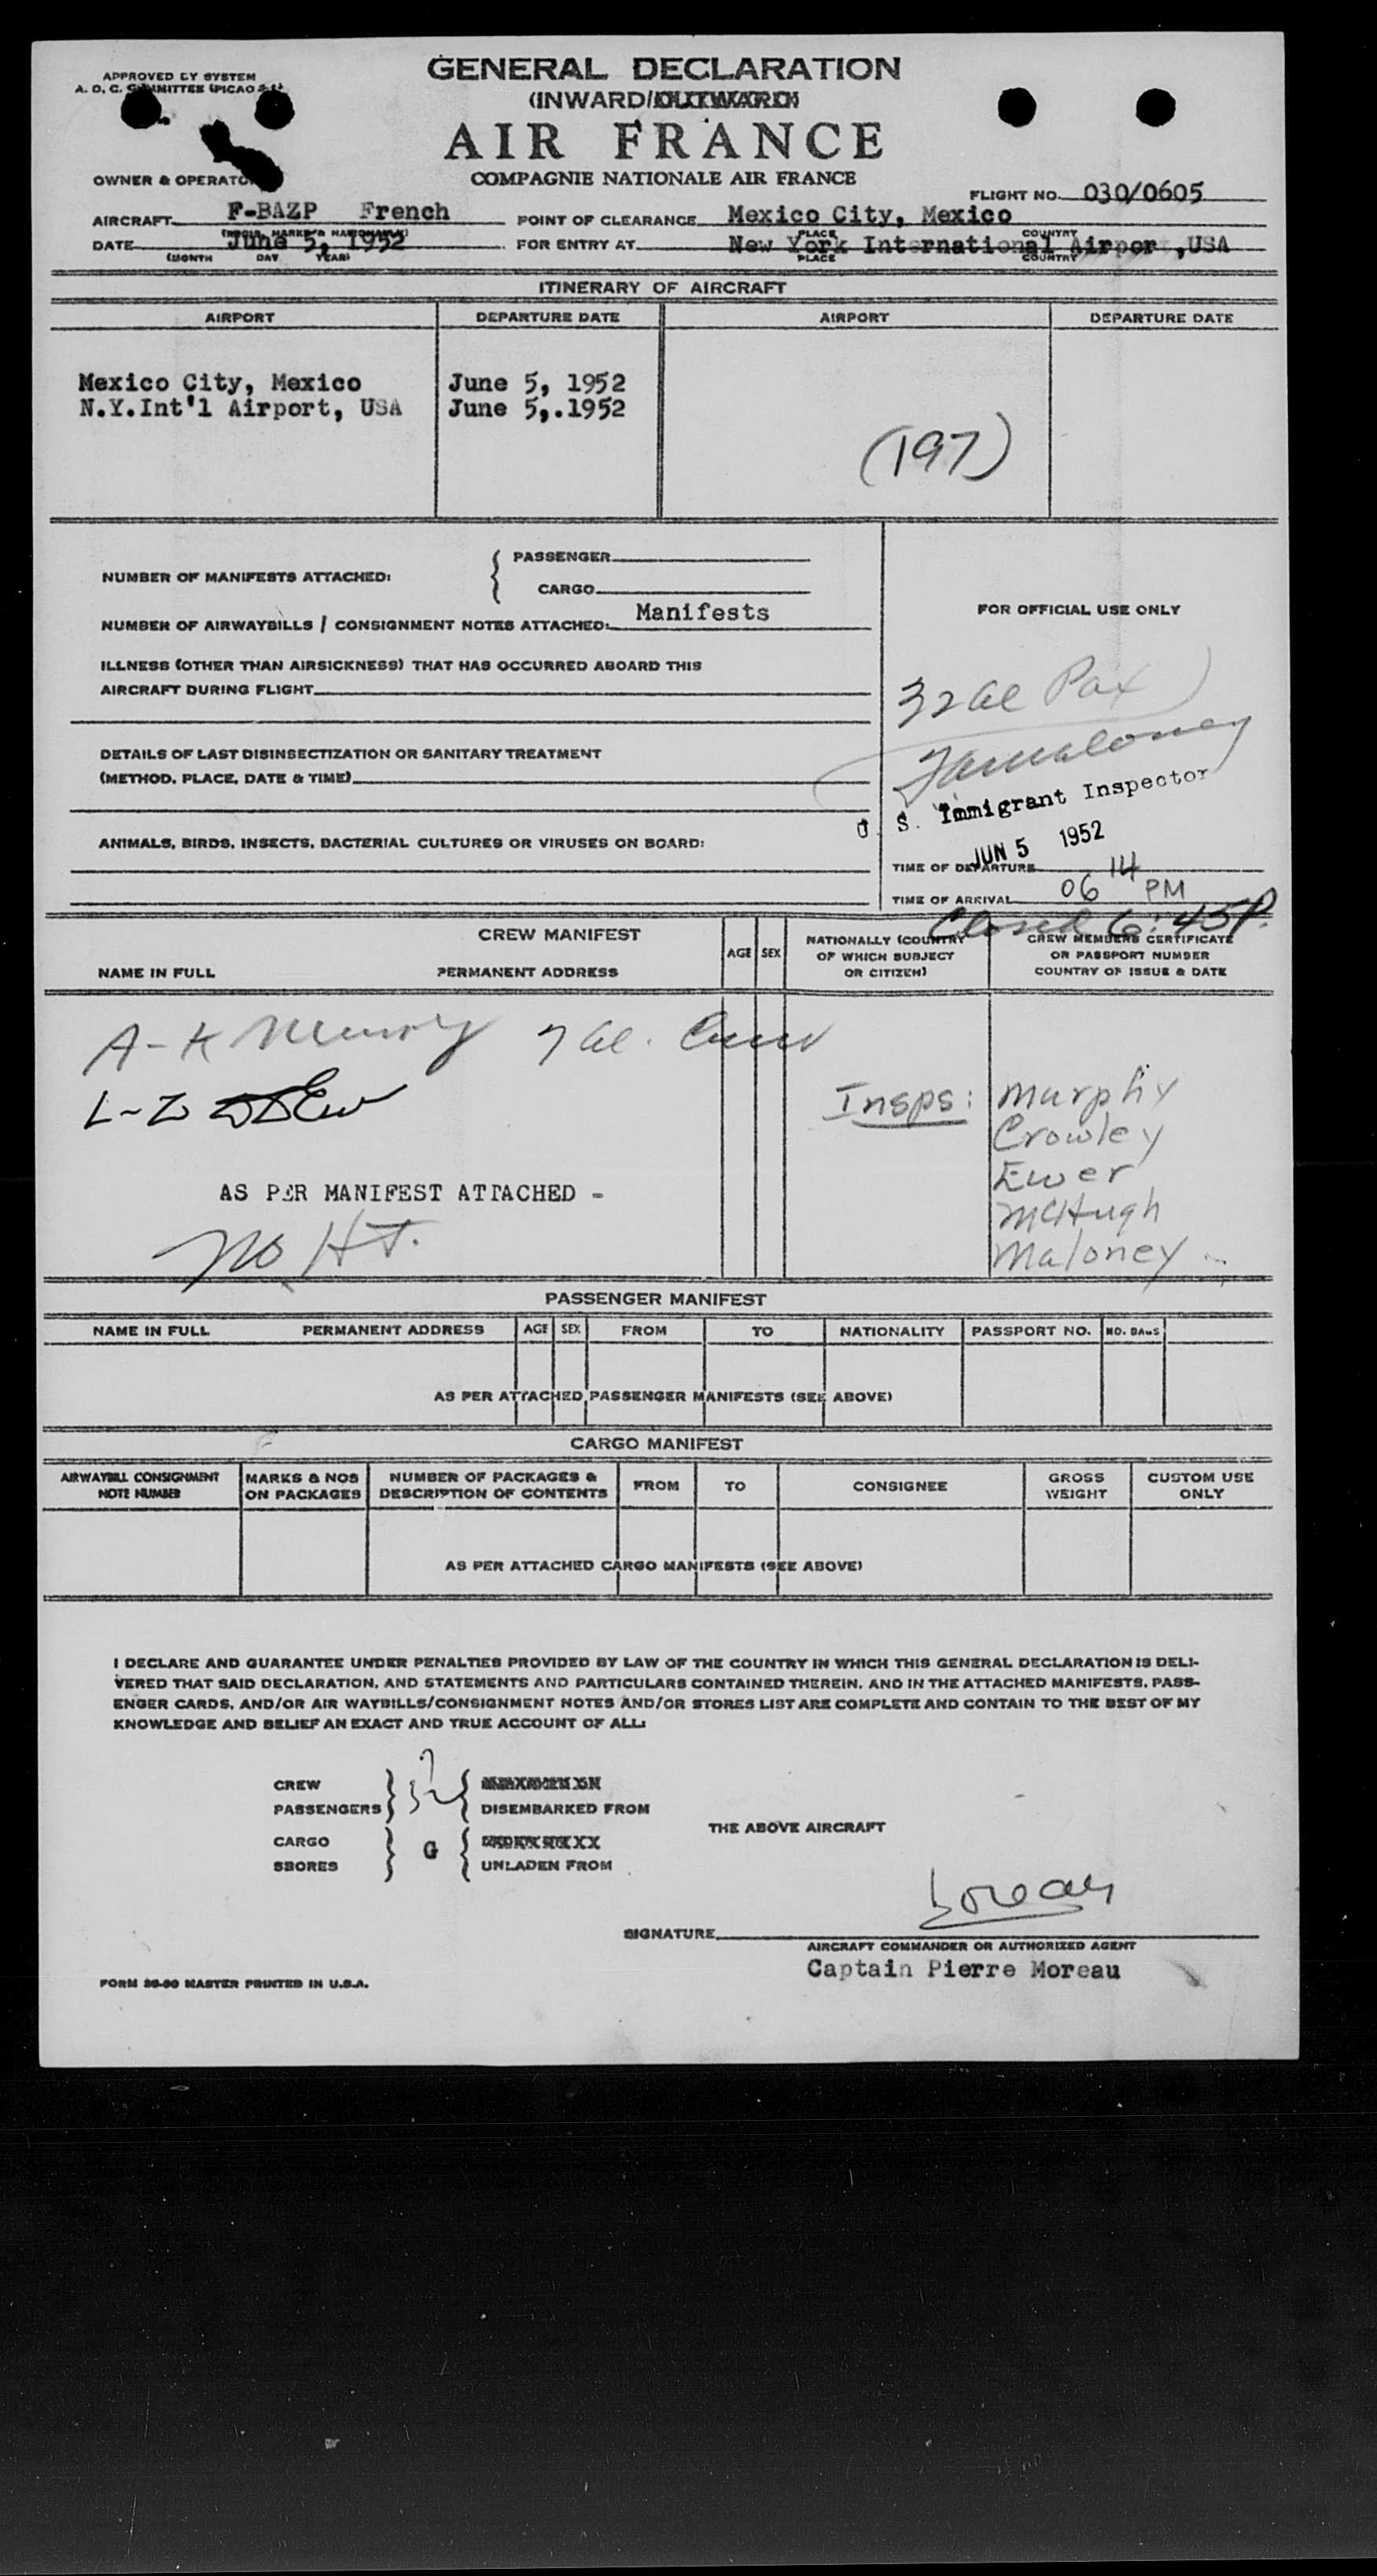 APPROVED BY SYSTEM
GENERAL DECLARATION
(INWARD/OUTWARD)
AIR FRANCE
OWNER & OPERATOR
COMPAGNIE NATIONALE AIR FRANCE
FLIGHT NO. 030/0605
AIRCRAFT F-BAZP French
POINT OF CLEARANCE Mexico City, Mexico
PLACE COUNTRY
DATE June 5, 1952
(MONTH DAY YEAR)
FOR ENTRY AT New York International Airport,USA
PLACE COUNTRY
ITINERARY OF AIRCRAFT
AIRPORT DEPARTURE DATE AIRPORT DEPARTURE DATE
Mexico City, Mexico June 5, 1952
N.Y.Int'l Airport, USA June 5,.1952
(197)
NUMBER OF MANIFESTS ATTACHED: { PASSENGER
CARGO
NUMBER OF AIRWAYBILLS / CONSIGNMENT NOTES ATTACHED: Manifests
FOR OFFICIAL USE ONLY
ILLNESS (OTHER THAN AIRSICKNESS) THAT HAS OCCURRED ABOARD THIS
AIRCRAFT DURING FLIGHT
32 al Pax
DETAILS OF LAST DISINSECTIZATION OR SANITARY TREATMENT
(METHOD, PLACE, DATE & TIME)
Maloney
U. S. Immigrant Inspector
ANIMALS, BIRDS, INSECTS, BACTERIAL CULTURES OR VIRUSES ON BOARD:
JUN 5 1952
TIME OF DEPARTURE
TIME OF ARRIVAL 06 14 PM
Closed 6:45P.
CREW MANIFEST
NAME IN FULL PERMANENT ADDRESS AGE SEX
NATIONALLY (COUNTRY
OF WHICH SUBJECT
OR CITIZEN)
CREW MEMBERS CERTIFICATE
OR PASSPORT NUMBER
COUNTRY OF ISSUE & DATE
A-K 7 al. Crew
L-Z
Insps: Murphy
Crowley
Ewer
McHugh
Maloney
AS PER MANIFEST ATTACHED -
No HT.
PASSENGER MANIFEST
NAME IN FULL PERMANENT ADDRESS AGE SEX FROM TO NATIONALITY PASSPORT NO. NO. BAGS
AS PER ATTACHED PASSENGER MANIFESTS (SEE ABOVE)
CARGO MANIFEST
AIRWAYBILL CONSIGNMENT
NOTE NUMBER
MARKS & NOS
ON PACKAGES
NUMBER OF PACKAGES &
DESCRIPTION OF CONTENTS
FROM TO CONSIGNEE
GROSS
WEIGHT
CUSTOM USE
ONLY
AS PER ATTACHED CARGO MANIFESTS (SEE ABOVE)
I DECLARE AND GUARANTEE UNDER PENALTIES PROVIDED BY LAW OF THE COUNTRY IN WHICH THIS GENERAL DECLARATION IS DELI-
VERED THAT SAID DECLARATION, AND STATEMENTS AND PARTICULARS CONTAINED THEREIN, AND IN THE ATTACHED MANIFESTS, PASS-
ENGER CARDS, AND/OR AIR WAYBILLS/CONSIGNMENT NOTES AND/OR STORES LIST ARE COMPLETE AND CONTAIN TO THE BEST OF MY
KNOWLEDGE AND BELIEF AN EXACT AND TRUE ACCOUNT OF ALL:
CREW 7
PASSENGERS 32 DISEMBARKED FROM
THE ABOVE AIRCRAFT
CARGO G
SBORES UNLADEN FROM
Moreau
SIGNATURE
AIRCRAFT COMMANDER OR AUTHORIZED AGENT
Captain Pierre Moreau
FORM 20-90 MASTER PRINTED IN U.S.A.